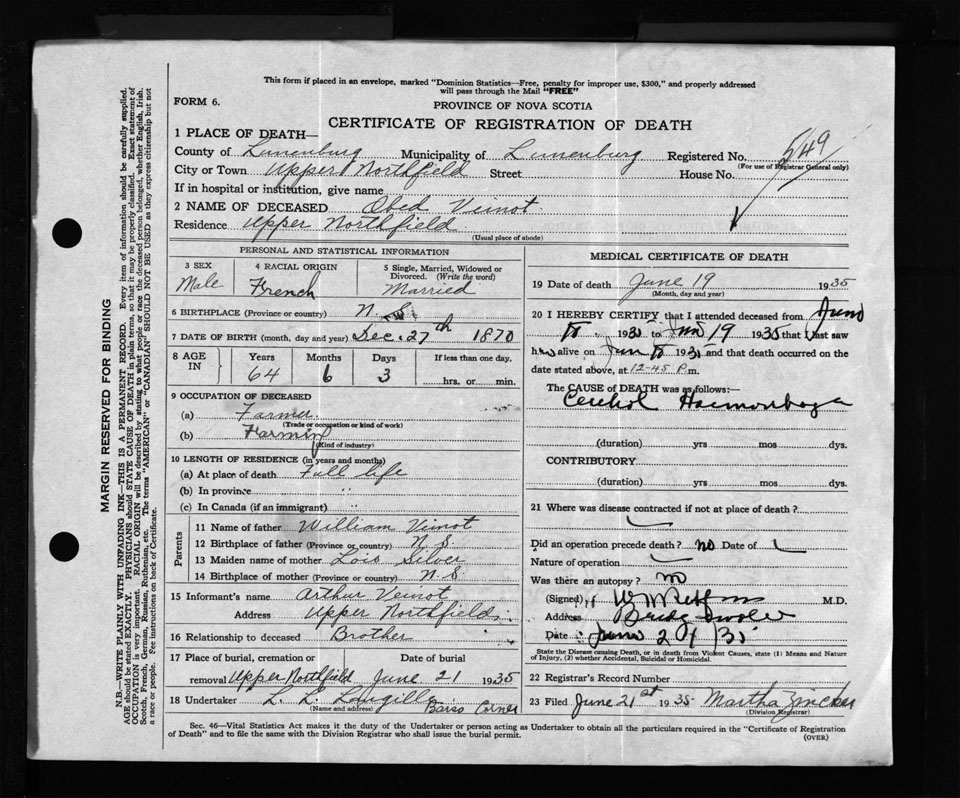 This form if placed in an envelope, marked "Dominion Statistics—Free, penalty for improper use, $300," and properly addressed
will pass through the Mail "FREE"
FORM 6.
PROVINCE OF NOVA SCOTIA
CERTIFICATE OF REGISTRATION OF DEATH
1 PLACE OF DEATH—
County of Lunenburg Municipality of Lunenburg Registered No. 549
(For use of Registrar General only)
City or Town Upper Northfield Street House No.
If in hospital or institution, give name
2 NAME OF DECEASED Obed Veinot
Residence Upper Northfield
(Usual place of abode)
PERSONAL AND STATISTICAL INFORMATION
3 SEX 4 RACIAL ORIGIN 5 Single, Married, Widowed or
Divorced. (Write the word)
Male French Married
6 BIRTHPLACE (Province or country) N. S.
7 DATE OF BIRTH (month, day and year) Dec. 27th 1870
8 AGE IN Years Months Days If less than one day,
64 6 3 hrs. or min.
9 OCCUPATION OF DECEASED
(a) Farmer
(Trade or occupation or kind of work)
(b) Farming
(Kind of industry)
10 LENGTH OF RESIDENCE (in years and months)
(a) At place of death Full life
(b) In province "
(c) In Canada (if an immigrant) "
Parents
11 Name of father William Veinot
12 Birthplace of father (Province or country) N. S.
13 Maiden name of mother Lois Silver
14 Birthplace of mother (Province or country) N. S.
15 Informant's name Arthur Veinot
Address Upper Northfield
16 Relationship to deceased Brother
17 Place of burial, cremation or Date of burial
removal Upper Northfield June 21 1935
18 Undertaker L. L. Langille
(Name and address) Barss Corner
MEDICAL CERTIFICATE OF DEATH
19 Date of death June 19 1935
(Month, day and year)
20 I HEREBY CERTIFY that I attended deceased from June
18, 1935 to June 19 1935 that I last saw
him alive on June 18 1935 and that death occurred on the
date stated above, at 12-45 P.m.
The CAUSE OF DEATH was as follows:—
Cerebral Haemorrhage
(duration) yrs mos dys.
CONTRIBUTORY
(duration) yrs mos dys.
21 Where was disease contracted if not at place of death?
Did an operation precede death? no Date of
Nature of operation
Was there an autopsy? no
(Signed) M.D.
Address
Date June 21 35
State the Disease causing Death, or in death from Violent Causes, state (1) Means and Nature
of Injury, (2) whether Accidental, Suicidal or Homicidal.
22 Registrar's Record Number
23 Filed June 21st 1935 Martha Zincker
(Division Registrar)
Sec. 46—Vital Statistics Act makes it the duty of the Undertaker or person acting as Undertaker to obtain all the particulars required in the "Certificate of Registration
of Death" and to file the same with the Division Registrar who shall issue the burial permit.
(OVER)
MARGIN RESERVED FOR BINDING
N.B.—WRITE PLAINLY WITH UNFADING INK—THIS IS A PERMANENT RECORD. Every item of information should be carefully supplied.
AGE should be stated EXACTLY. PHYSICIANS should STATE CAUSE OF DEATH in plain terms, so that it may be properly classified. Exact statement of
OCCUPATION is very important. RACIAL ORIGIN will be described by stating to what people or race the deceased person belonged, whether English, Irish,
Scotch, French, German, Russian, Ruthenian, etc. The terms "AMERICAN" or "CANADIAN" SHOULD NOT BE USED as they express citizenship but not
a race or people. Fee instructions on back of Certificate.